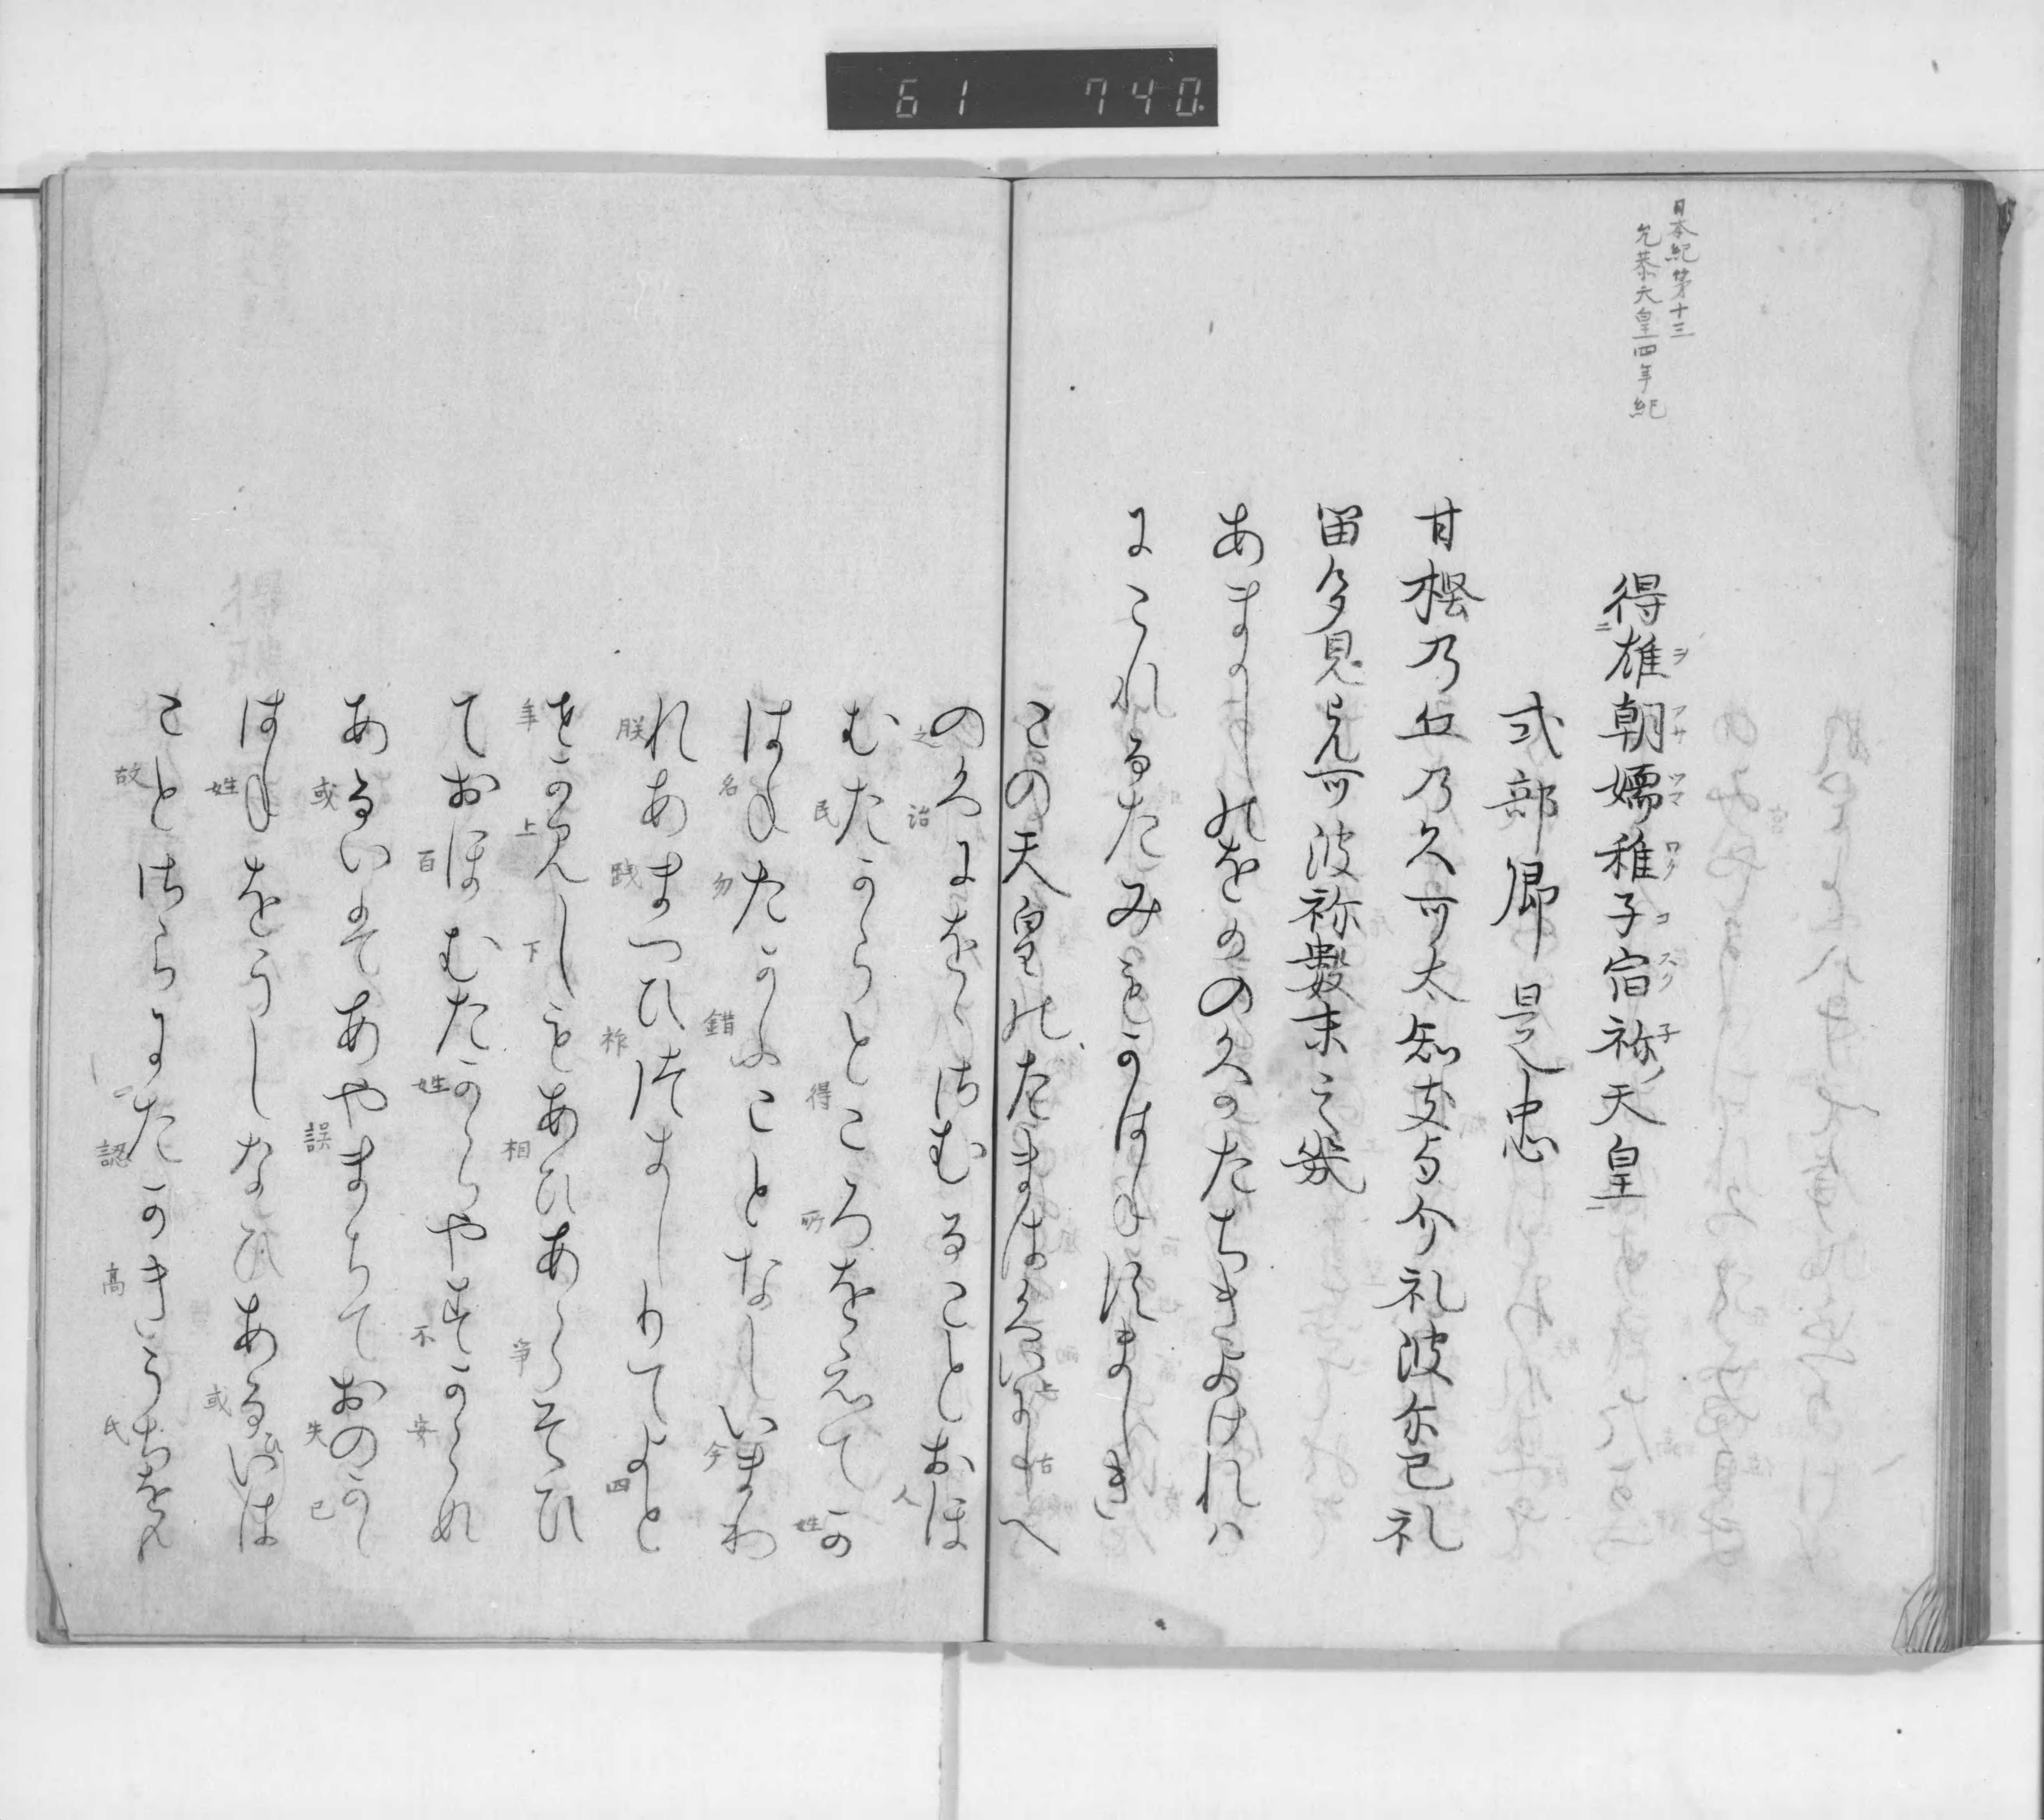 61 740
日本紀第十三
允恭天皇四年紀
得雄朝嬬稚子宿祢天皇
ヲ アサ ツマ ワク コ スク 子
式部卿是忠
甘樫乃丘乃久可太知支与介礼波尓己礼
留多見毛可波祢數末之幾
あまかしのをかのくかたちきよけれは
にこれるたみもかはねすましき
この天皇のたまはくいにしへ
のくにをさむることおほ
むたからところをえてか
はねたかふことなしいまわ
れあまつひつきしりてよと
せかみしもあひあらそひ
ておほむたからやすからぬ
あるいはあやまちておのか
はねをうしなひあるいは
ことさらにたかきうちをえ
之 治 人
民 得 所 姓
名 勿 錯 今
朕 践 祚 四
年 上 下 相 争
百 姓 不 安
或 誤 失 己
姓 或
故 認 高 氏